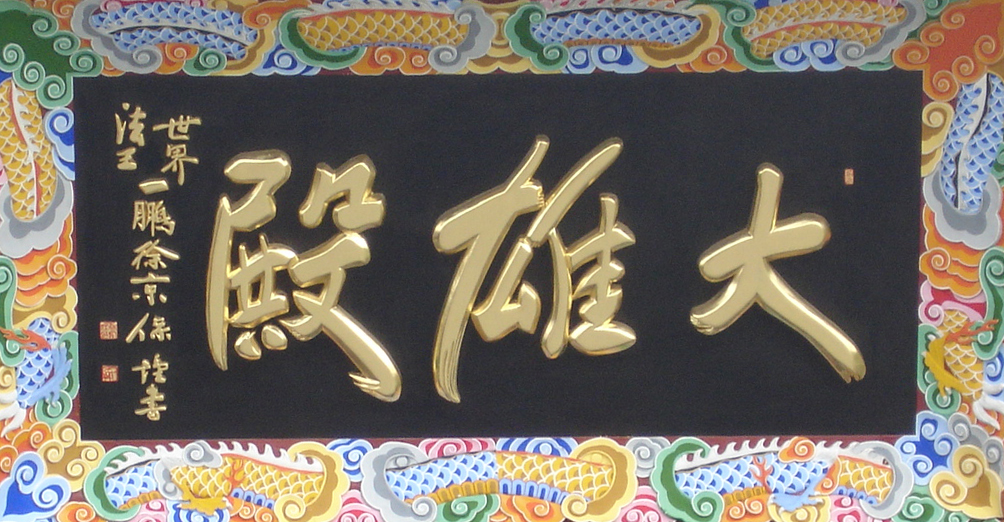 大雄殿
世界
法王
一鵬徐京保謹書